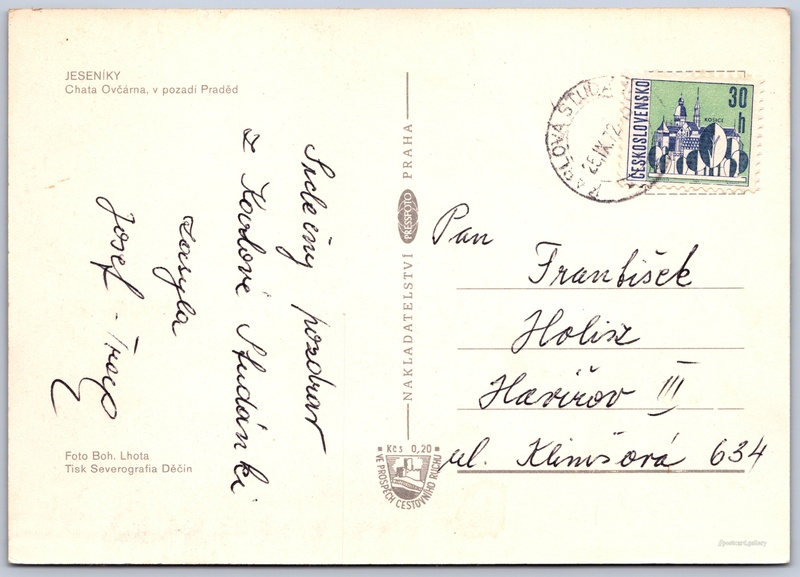 JESENÍKY
Chata Ovčárna, v pozadí Praděd
Srdečný pozdrav
z Karlové Studánki
zasyla
Josef -
Foto Boh. Lhota
Tisk Severografia Děčín
NAKLADATELSTVÍ PRESSFOTO PRAHA
Kčs 0,20
VE PROSPĚCH CESTOVNÍHO RUCHU
KARLOVA STUDÁNKA
ČESKOSLOVENSKO
30 h
KOŠICE
Pan
František
Holisz
Havířov III
ul. Klimšová 634
postcard.gallery